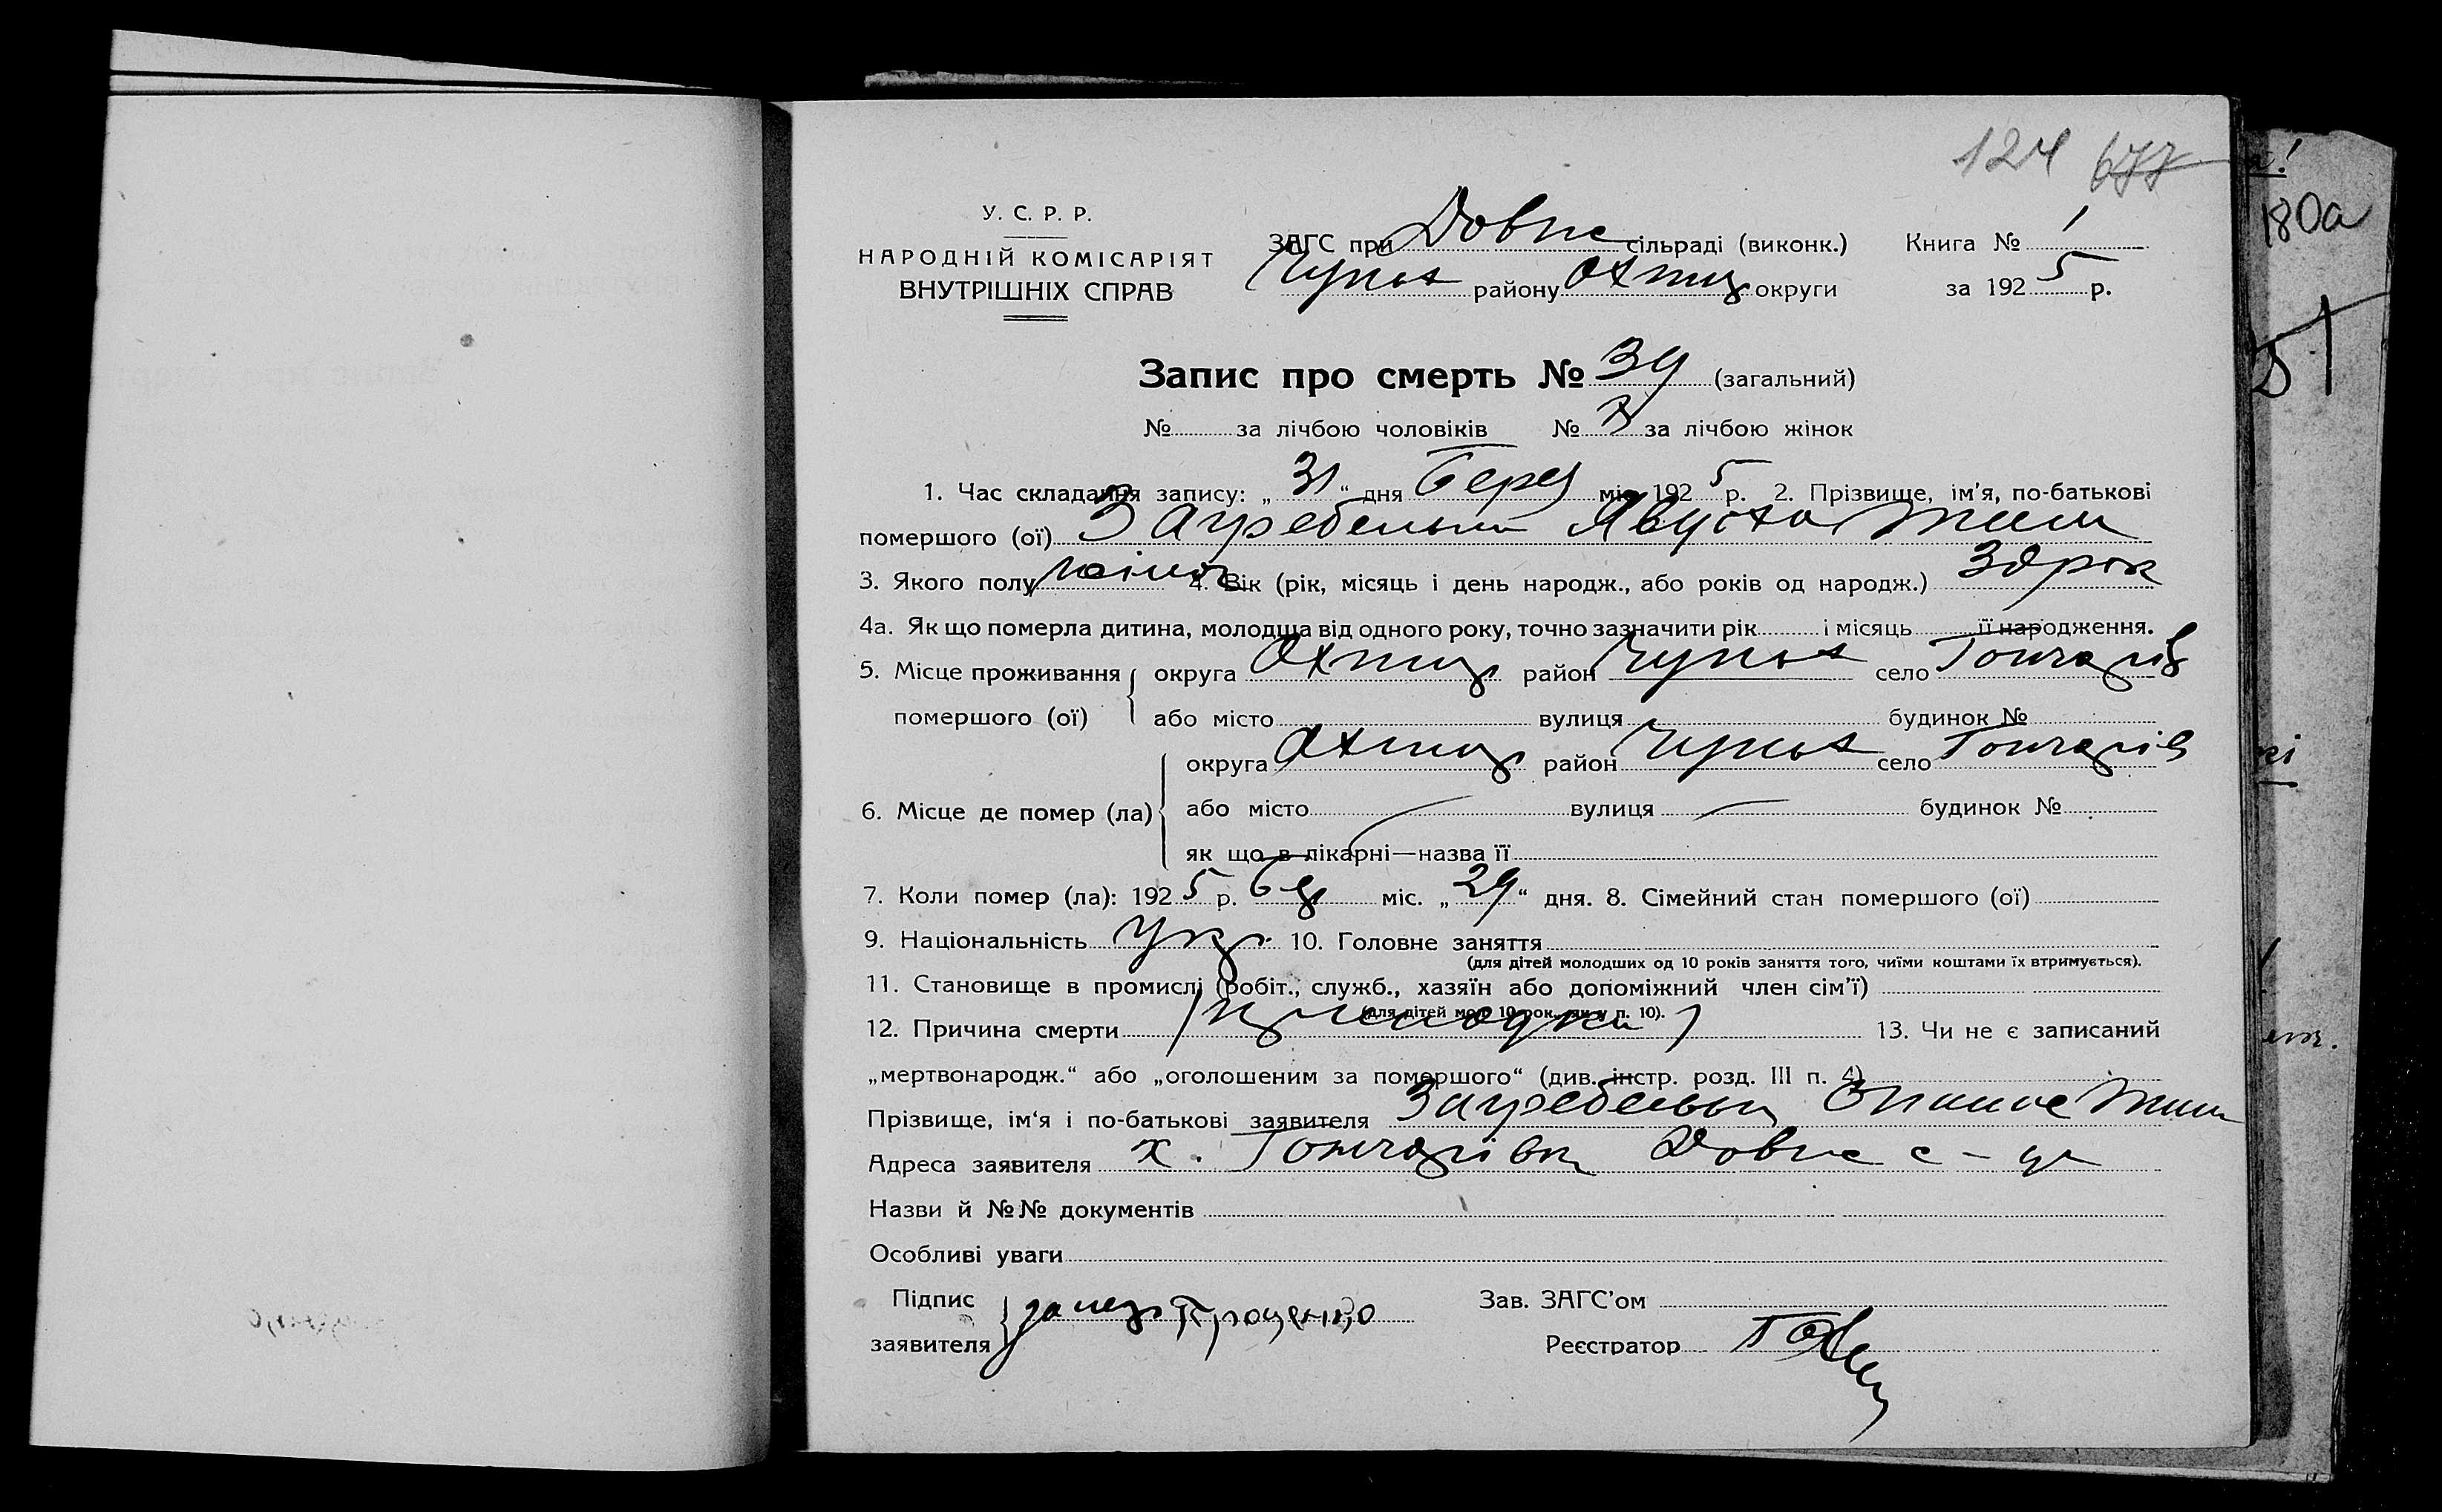 124 677
У. С. Р. Р.
НАРОДНІЙ КОМІСАРІЯТ
ВНУТРІШНІХ СПРАВ
ЗАГС при Довж сільраді (виконк.) Книга № 1
Чупах району Охтир округи за 1925 р.
180а
Запис про смерть № 39 (загальний)
№ за лічбою чоловіків № за лічбою жінок
1. Час складання запису: „31“ дня Берез міс. 1925 р. 2. Прізвище, ім'я, по-батькові
помершого (ої) Загребельна Явдоха
3. Якого полу жіноч 4. Вік (рік, місяць і день народж., або років од народж.) рок
4а. Як що померла дитина, молодща від одного року, точно зазначити рік і місяць її народження.
5. Місце проживання округа Охтир район Чупах село Гончарів
помершого (ої) або місто вулиця будинок №
округа Охтир район Чупах село Гончарів
6. Місце де помер (ла) або місто вулиця будинок №
як що в лікарні—назва її
7. Коли помер (ла): 1925 р. Бер міс. „29“ дня. 8. Сімейний стан помершого (ої)
9. Національність Укр. 10. Головне заняття
(для дітей молодших од 10 років заняття того, чиїми коштами їх втримується).
11. Становище в промислі (робіт., служб., хазяїн або допоміжний член сім'ї)
(для дітей мол. 10 рок., як у п. 10).
12. Причина смерти 13. Чи не є записаний
„мертвонародж.“ або „оголошеним за помершого“ (див. інстр. розд. III п. 4)
Прізвище, ім'я і по-батькові заявителя Загребельн
Адреса заявителя х. Гончарівка Довж с-ди
Назви й №№ документів
Особливі уваги
Підпис заявителя за негр Проценко Зав. ЗАГС'ом
Реєстратор